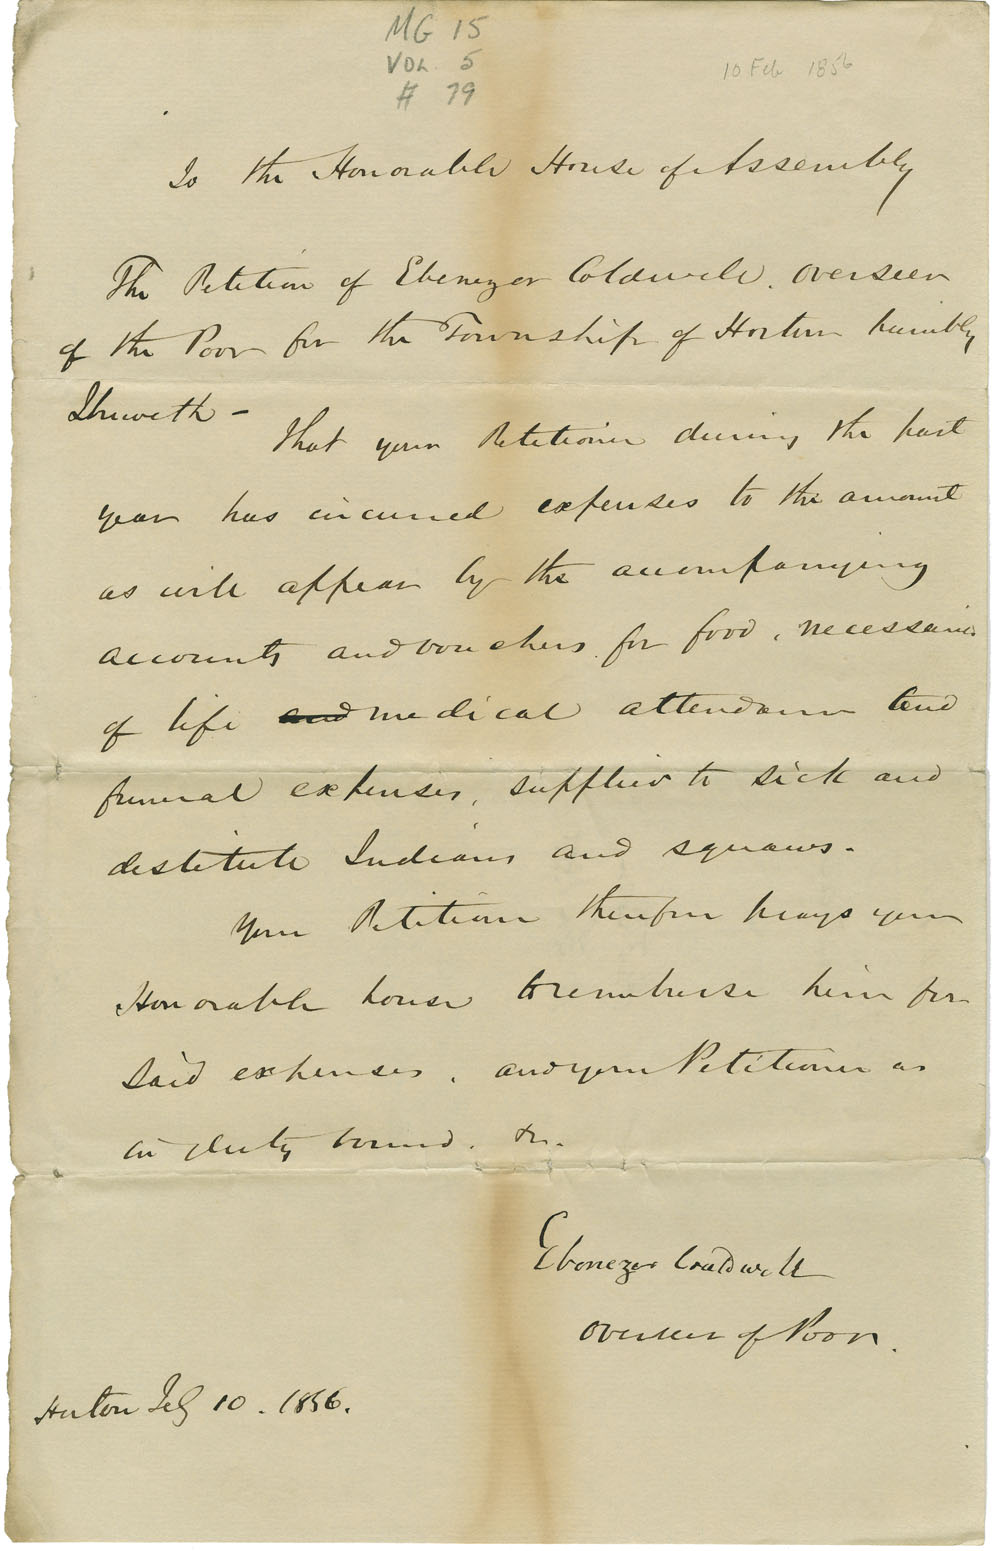 MG 15
VOL. 5
# 79
10 Feb 1856
To the Honorable House of Assembly
The Petition of Ebenezer Coldwell. overseer
of the Poor for the Township of Horton humbly
Sheweth -
That your Petitioner during the past
year has incurred expenses to the amount
as will appear by the accompanying
accounts and vouchers for food, necessaries
of life and medical attendance and
funeral expenses, supplied to sick and
destitute Indians and squaws.
Your Petitioner therefore prays your
Honorable house to remburse him for
said expenses, and your Petitioner as
in duty bound. &c.
Ebenezer Couldwell
Overseer of Poor.
Horton Feby 10. 1856.